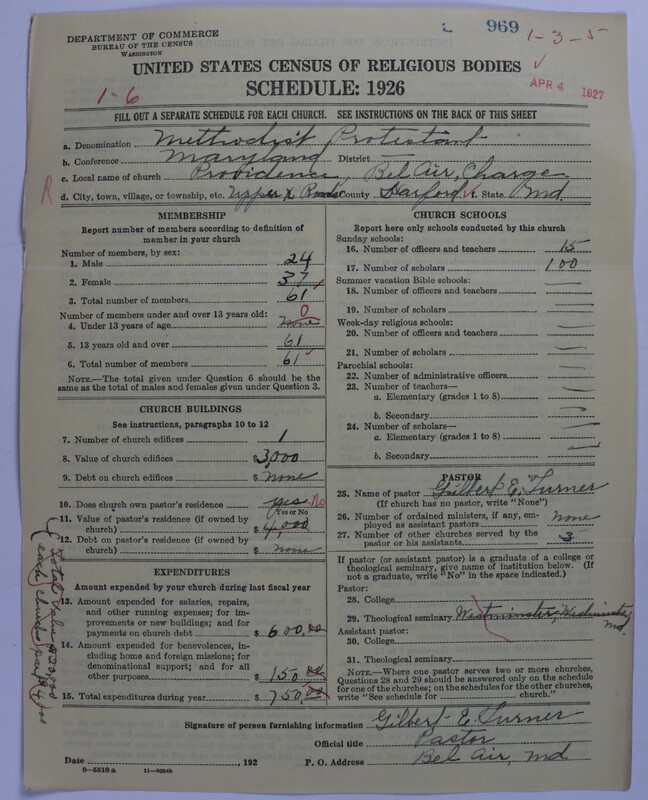 969
1-3-5
DEPARTMENT OF COMMERCE
BUREAU OF THE CENSUS
WASHINGTON
UNITED STATES CENSUS OF RELIGIOUS BODIES
SCHEDULE: 1926
APR 4 1927
1-6
FILL OUT A SEPARATE SCHEDULE FOR EACH CHURCH. SEE INSTRUCTIONS ON THE BACK OF THIS SHEET
a. Denomination Methodist Protestant
b. Conference Maryland District —
c. Local name of church Providence, Bel Air, Charge
R d. City, town, village, or township, etc. Upper X Roads County Harford f. State Md.
MEMBERSHIP
Report number of members according to definition of member in your church
Number of members, by sex:
1. Male 24
2. Female 37
3. Total number of members 61
Number of members under and over 13 years old:
4. Under 13 years of age none 0
5. 13 years old and over 61
6. Total number of members 61
NOTE.—The total given under Question 6 should be the same as the total of males and females given under Question 3.
CHURCH BUILDINGS
See instructions, paragraphs 10 to 12
7. Number of church edifices 1
8. Value of church edifices $3,000
9. Debt on church edifices $ none
10. Does church own pastor's residence yes No
Yes or No
11. Value of pastor's residence (if owned by church) $4,000
12. Debt on pastor's residence (if owned by church) $ none
EXPENDITURES
Amount expended by your church during last fiscal year
13. Amount expended for salaries, repairs, and other running expenses; for improvements or new buildings; and for payments on church debt $600.00
14. Amount expended for benevolences, including home and foreign missions; for denominational support; and for all other purposes $150.00
15. Total expenditures during year $750.00
CHURCH SCHOOLS
Report here only schools conducted by this church
Sunday schools:
16. Number of officers and teachers 15
17. Number of scholars 100
Summer vacation Bible schools:
18. Number of officers and teachers —
19. Number of scholars —
Week-day religious schools:
20. Number of officers and teachers —
21. Number of scholars —
Parochial schools:
22. Number of administrative officers —
23. Number of teachers—
a. Elementary (grades 1 to 8) —
b. Secondary —
24. Number of scholars—
a. Elementary (grades 1 to 8) —
b. Secondary —
PASTOR
25. Name of pastor Gilbert E. Turner
(If church has no pastor, write "None")
26. Number of ordained ministers, if any, employed as assistant pastors none
27. Number of other churches served by the pastor or his assistants 3
If pastor (or assistant pastor) is a graduate of a college or theological seminary, give name of institution below. (If not a graduate, write "No" in the space indicated.)
Pastor:
28. College
29. Theological seminary Westminster, Westminster, Md.
Assistant pastor:
30. College
31. Theological seminary
NOTE.—Where one pastor serves two or more churches, Questions 28 and 29 should be answered only on the schedule for one of the churches; on the schedules for the other churches, write "See schedule for church."
Total value
each church
Signature of person furnishing information Gilbert E. Turner
Official title Pastor
Date , 192 P. O. Address Bel Air, Md